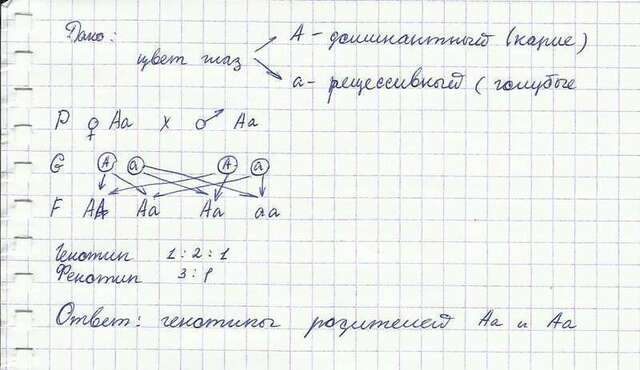 Дано:
цвет глаз
А - доминантный (карие)
а - рецессивный (голубые
P ♀ Aa x ♂ Aa
G A a A a
F AA Aa Aa aa
Генотип 1:2:1
Фенотип 3:1
Ответ: генотипы родителей Аа и Аа